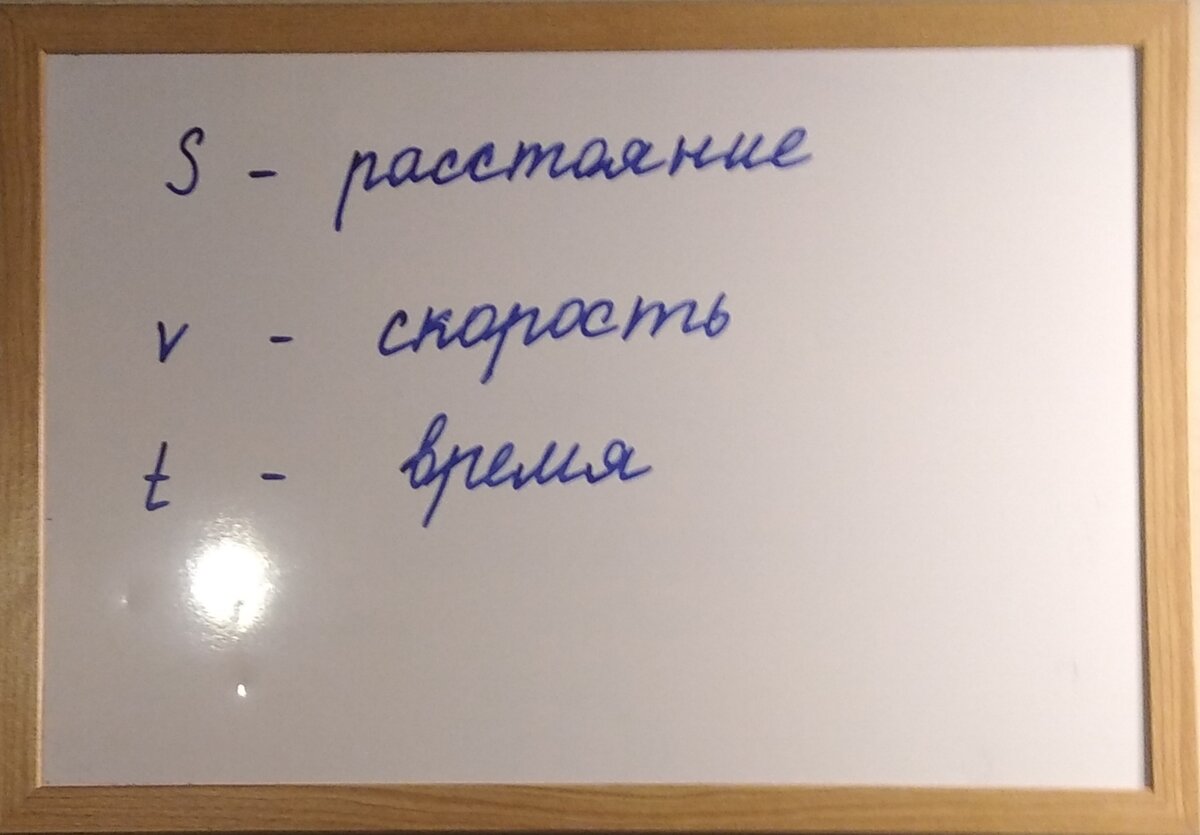 S - расстояние
v - скорость
t - время